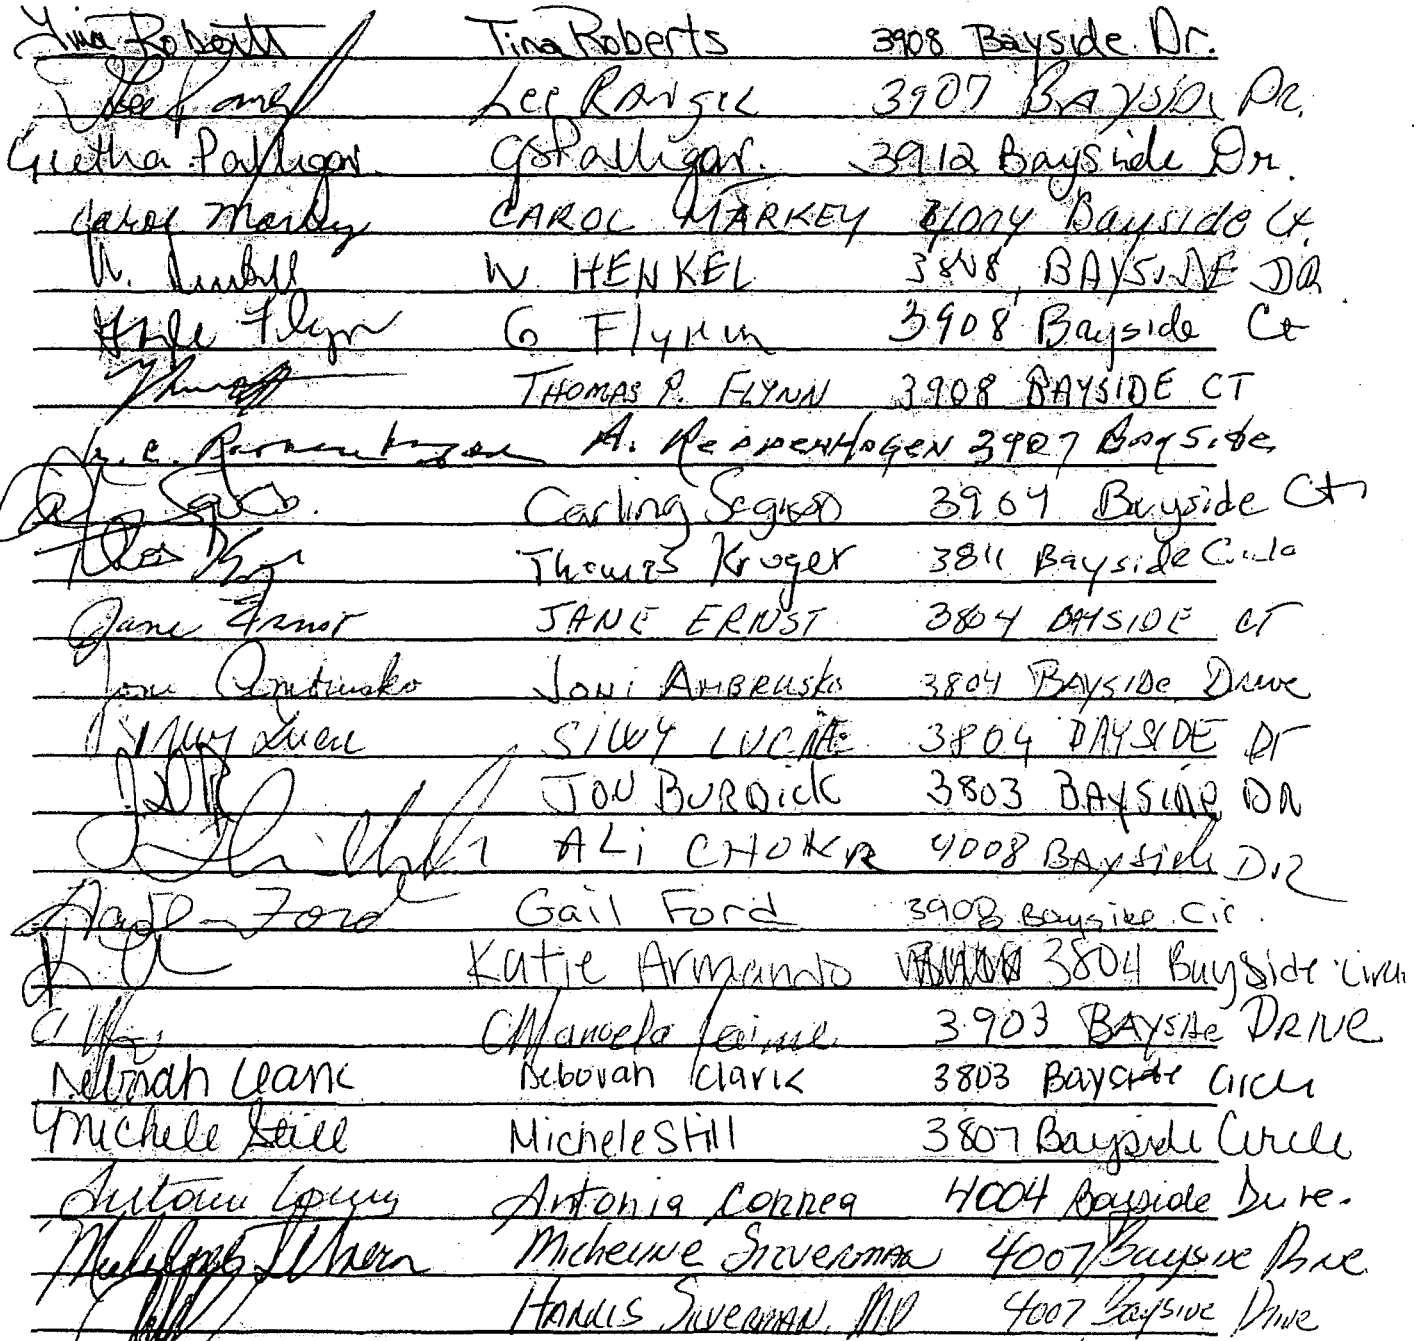 Tina Roberts Tina Roberts 3908 Bayside Dr.
Lee Rangel 3907 BAYSIDE DR.
Gretha Palligar. GSPalligar. 3912 Bayside Dr.
Carol Markey CAROL MARKEY 4004 Bayside Ct.
W. HENKEL 3808, BAYSIDE DR
Flynn G Flynn 3908 Bayside Ct
THOMAS P. FLYNN 3908 BAYSIDE CT
A. 3907 Bayside
Carling 3904 Bayside Ct
Thomas Kruger 3811 Bayside
Jane Ernst JANE ERNST 3804 BAYSIDE CT
Joni Ambrusko Joni AMBRUSKO 3804 BAYSIDE Drive
3804 BAYSIDE
JON BURDICK 3803 BAYSIDE DR
ALi CHOKR 4008 BAYSide DR
Ford Gail Ford 3908 Bayside Cir.
Katie Armando 3804 Bayside
Manuela Jaime 3903 BAYSIDE DRIVE
Deborah Clark Deborah Clark 3803 Bayside Circle
Michele Still Michele Still 3807 Bayside Circle
Antonia Correa 4004 Bayside
Micheline Silverman 4007 Bayside Drive
SILVERMAN, MD 4007 Bayside Drive